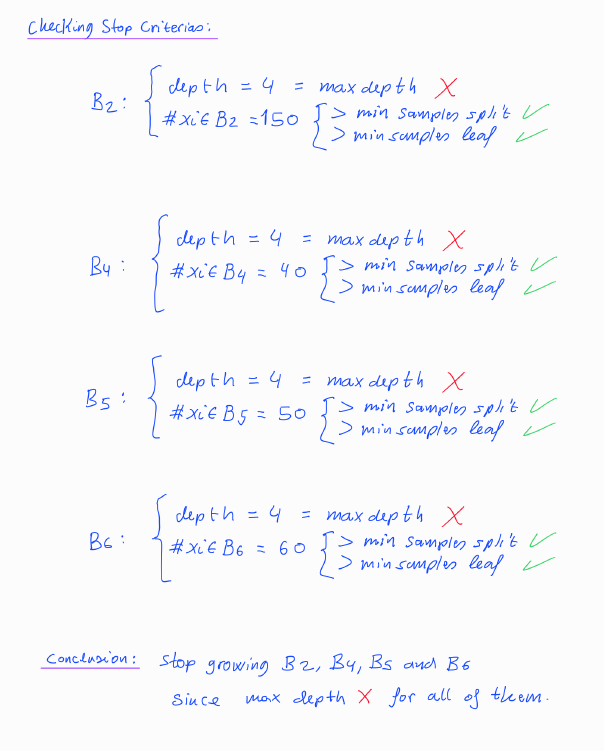 Checking Stop Criterias:
B2 : { depth = 4 = max depth X
#xi∈B2 = 150 { > min samples split ✓
> min samples leaf ✓
B4 : { depth = 4 = max depth X
#xi∈B4 = 40 { > min samples split ✓
> min samples leaf ✓
B5 : { depth = 4 = max depth X
#xi∈B5 = 50 { > min samples split ✓
> min samples leaf ✓
B6 : { depth = 4 = max depth X
#xi∈B6 = 60 { > min samples split ✓
> min samples leaf ✓
Conclusion: Stop growing B2, B4, B5 and B6
since max depth X for all of them.